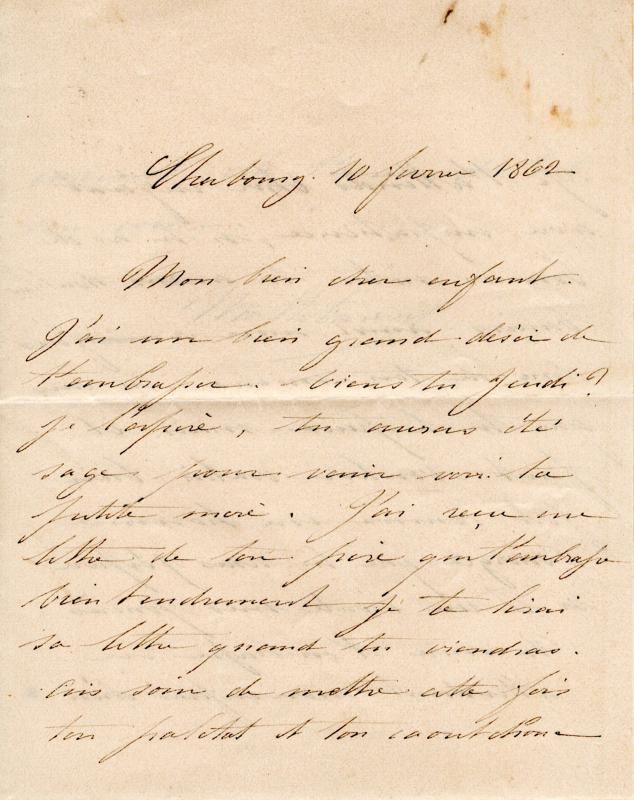 Cherbourg. 10 fevrier 1862
Mon bien cher enfant.
J'ai un bien grand désir de
t'embrasser. Viens tu Jeudi?
je l'espère, tu auras été
sage pour venir voir ta
petite mère. J'ai reçu une
lettre de ton père qui t'embrasse
bien tendrement je te lirai
sa lettre quand tu viendras.
aies soin de mettre cette fois
ton paletot et ton caoutchouc